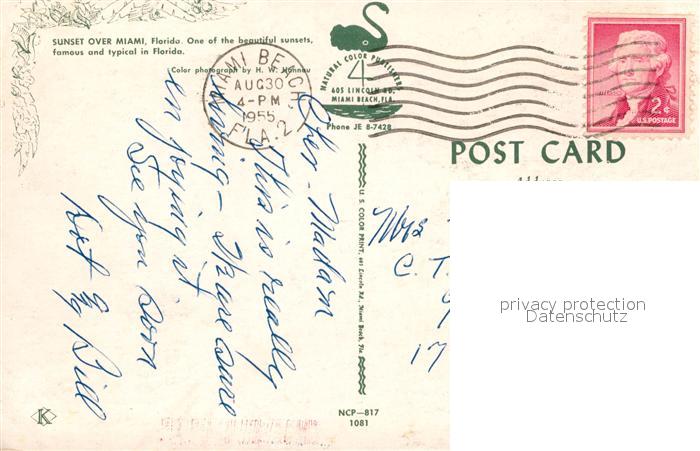 SUNSET OVER MIAMI, Florida. One of the beautiful sunsets,
famous and typical in Florida.
Color photograph by H. W. Hannau
MIAMI BEACH
AUG 30
4-PM
1955
FLA. 2
NATURAL COLOR PUBLISHER
4
605 LINCOLN RD.
MIAMI BEACH, FLA.
Phone JE 8-7428
2¢
U.S. POSTAGE
POST CARD
Cher Madam
This is really
living - I'm sure
enjoying it
See you soon
Kit & Bill
U. S. COLOR PRINT, 605 Lincoln Rd., Miami Beach, Fla.
Mrs
C. T.
17
privacy protection
Datenschutz
K
NCP—817
1081